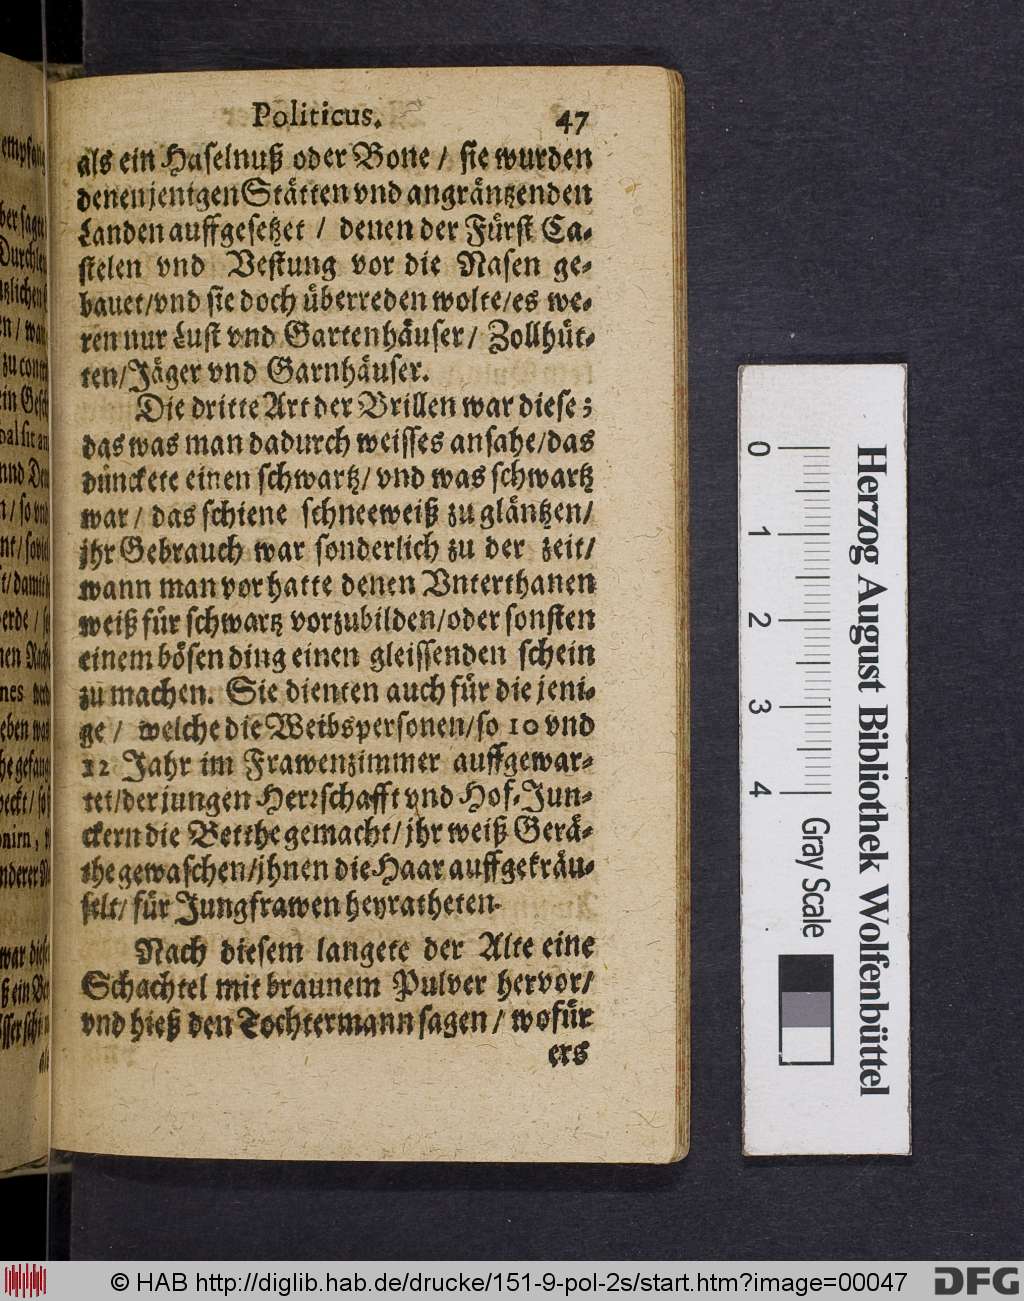 Politicus. 47
als ein Haselnuß oder Bone / sie wurden
denenjenigen Stätten vnd angräntzenden
Landen auffgesetzet / denen der Fürst Ca-
stelen vnd Vestung vor die Nasen ge-
bauet/vnd sie doch überreden wolte/es we-
ren nur Lust vnd Gartenhäuser / Zollhüt-
ten/Jäger vnd Garnhäuser.
Die dritte Art der Brillen war diese ;
das was man dadurch weisses ansahe/das
dünckete einen schwartz/ vnd was schwartz
war / das schiene schneeweiß zu gläntzen/
jhr Gebrauch war sonderlich zu der zeit/
wann man vor hatte denen Vnterthanen
weiß für schwartz vorzubilden/oder sonsten
einem bösen ding einen gleissenden schein
zu machen. Sie dienten auch für die jeni-
ge / welche die Weibspersonen/so 10 vnd
12 Jahr im Frawenzimmer auffgewar-
tet/der jungen Herrschafft vnd Hof-Jun-
ckern die Betthe gemacht/jhr weiß Gerä-
the gewaschen/jhnen die Haar auffgekräu-
selt/ für Jungfrawen heyratheten.
Nach diesem langete der Alte eine
Schachtel mit braunem Pulver hervor/
vnd hieß den Tochtermann sagen / wofür
ers
0 1 2 3 4
Gray Scale
Herzog August Bibliothek Wolfenbüttel
© HAB http://diglib.hab.de/drucke/151-9-pol-2s/start.htm?image=00047
DFG